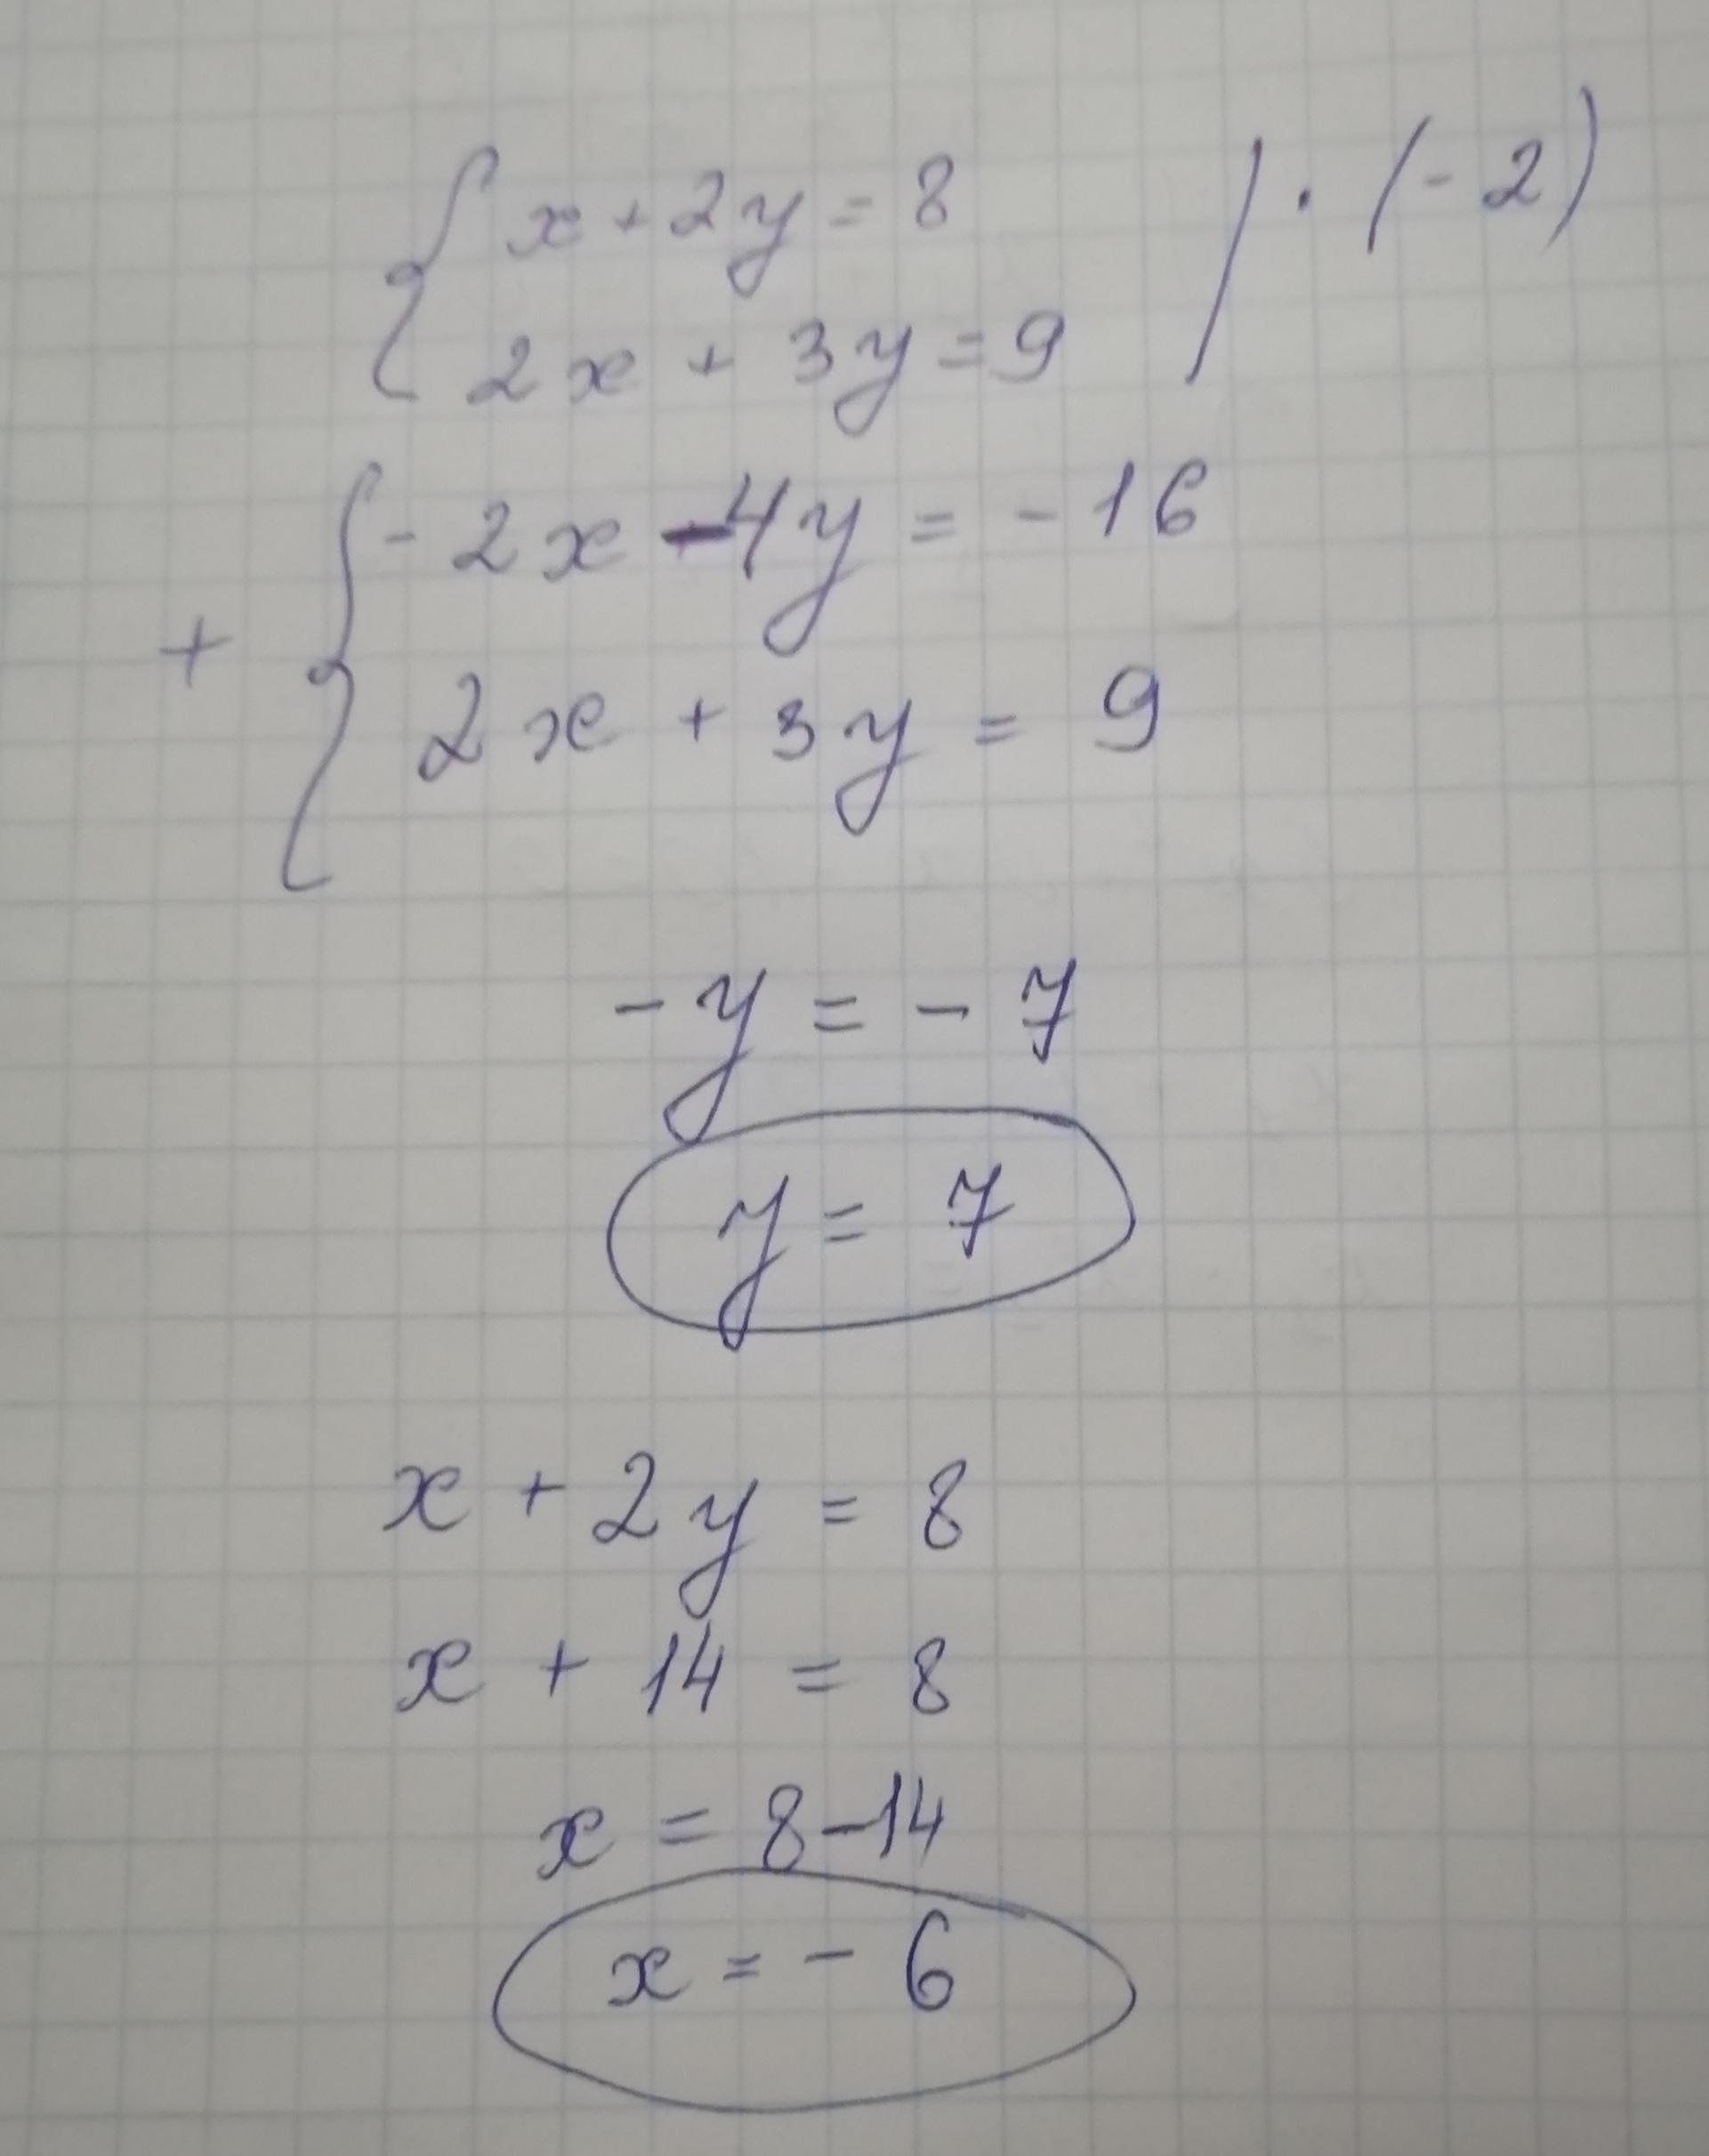 { x + 2y = 8 / · (-2)
2x + 3y = 9
+ { - 2x - 4y = - 16
2x + 3y = 9
- y = - 7
y = 7
x + 2y = 8
x + 14 = 8
x = 8 - 14
x = - 6